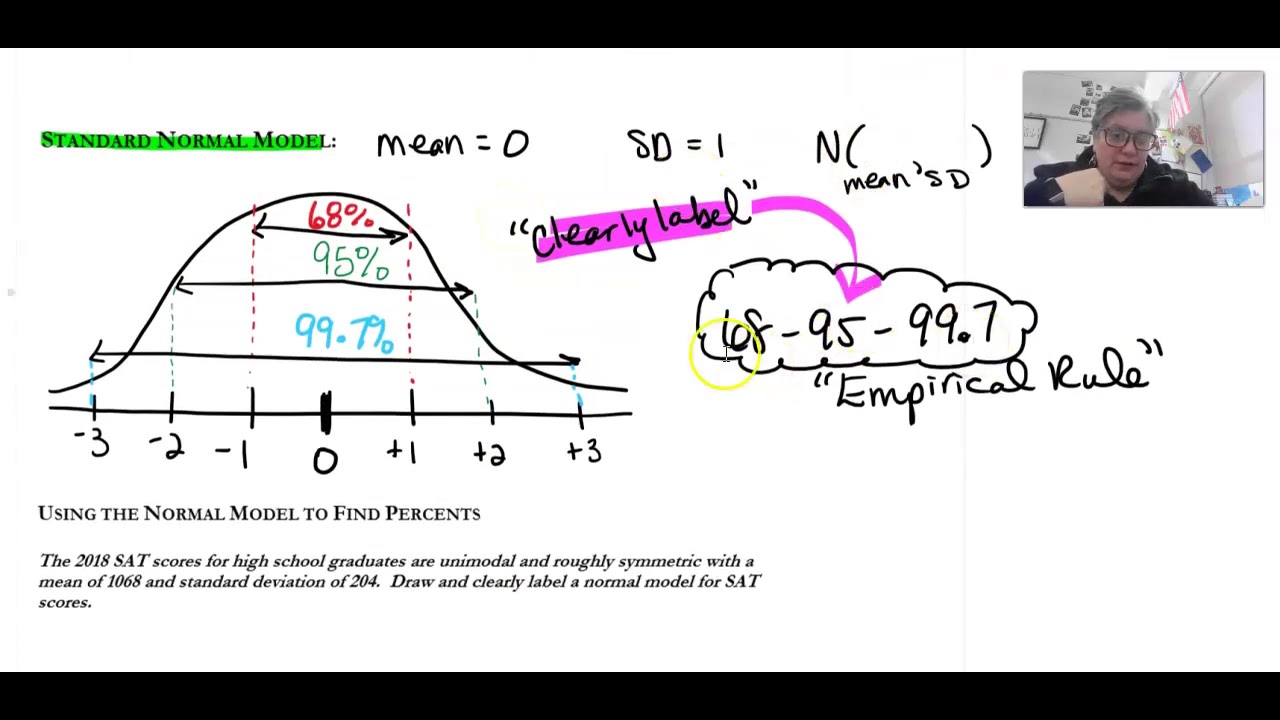 STANDARD NORMAL MODEL: mean = 0 SD = 1 N(mean, SD)
"Clearly label"
68%
95%
99.7%
68 - 95 - 99.7
"Empirical Rule"
-3 -2 -1 0 +1 +2 +3
USING THE NORMAL MODEL TO FIND PERCENTS
The 2018 SAT scores for high school graduates are unimodal and roughly symmetric with a
mean of 1068 and standard deviation of 204. Draw and clearly label a normal model for SAT
scores.